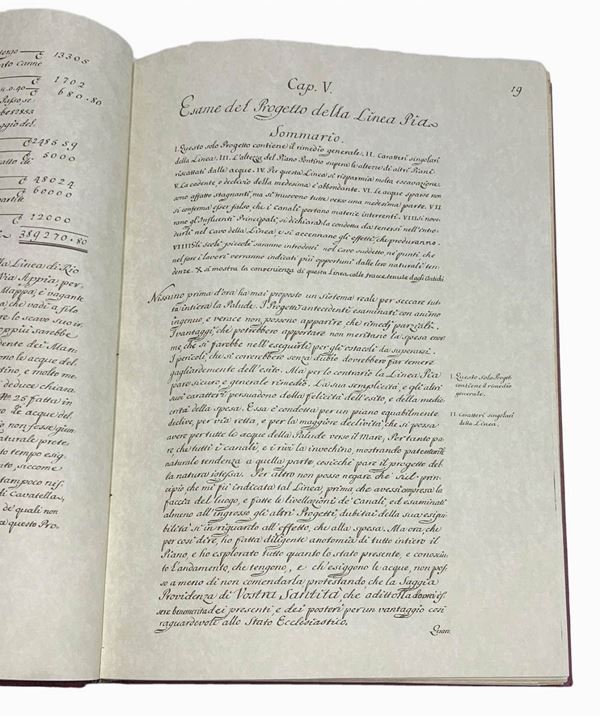 tergo — € 13308
nto Canne
€ 1702
n. 0.40
€ 680.80
Passo, se
€ 248589
atto gli € 5000
€ 48024
€ 60000
partite
€ 12000
389270.80
La Linea di Rio
Via Appia; per
Mappa; è vagante
che vadi a filo
lo scavo suo
più sarebbe
dente dei
no le acque del
tino, e molto me
deduce chiara
N.° 25 fatta in
Le acque dil
non fosse
naturale prete
tempo
sto, siccome
stampoco nel
di Cavatella,
de' quali non
a questo Pro
19
Cap. V.
Esame del Progetto della Linea Pia
Sommario.
I. Questo solo Progetto contiene il rimedio generale. II. Caratteri singolari
della Linea. III. L'altezza del Piano Pontino supera le altezze di altri Piani
riscattati dalle acque. IV. Per questa Linea si risparmia molta escavazione
V. La cadente, o declivio della medesima è abbondante. VI. Le acque sparse non
sono affatto stagnanti, ma si muovono tutte verso una medesima parte. VII
si conferma esser falso, che i canali portano materie interrenti. VIII. si nove-
rano gl'Influenti Principali, si dichiara la condotta da tenersi nell'intro-
durli nel Cavo della Linea; e si accennano gli effetti, che produrranno.
VIIII. Gli scoli piccoli saranno introdotti nel cavo suddetto ne' punti, che
nel fare i lavori verranno indicati più opportuni dalle loro naturali ten-
denze. X. si mostra la convenienza di questa Linea colle tracce tenute dagli Antichi
Nessuno prima d'ora ha mai proposto un sistema reale per seccare tut-
ta intiera la Palude. I Progetti antecedenti esaminati con animo
ingenuo, e verace non possono apparire che rimedj parziali.
I vantaggi che potrebbero apportare non meritano la spesa enor-
me, che si farebbe nell'eseguirli per gli ostacoli da superarsi.
I pericoli, che si correrebbero senza dubio dovrebbero far temere
gagliardemente dell'esito. Ma per lo contrario la Linea Pia
pare sicuro, e generale rimedio. La sua semplicità, e gli altri
suoi caratteri persuadono della felicità dell'esito, e della medio-
crità della spesa. Essa è condotta per un piano equabilmente
declive, per via retta, e per la maggiore declività, che si possa
avere per tutte le acque della Palude verso il Mare. Pertanto pa-
re che tutti i canali, e i rivi la invochino, mostrando patentente
naturale tendenza a quella parte, cosicchè pare il progetto del-
la natura istessa. Per altro non posso negare che sul prin-
cipio che mi fù indicata tal Linea prima che avessi compresa la
faccia del luogo, e fatte le livellazioni de' Canali, ed esaminati
almeno all'ingrosso gli altri Progetti, dubitai della sua esegui-
bilità sì in riguardo all'effetto, che alla spesa. Ma ora, che
per così dire, ho fatta diligente anotomia di tutto intiero il
Piano, e ho esplorato tutto quanto lo stato presente, e conosciu-
to l'andamento, che tengono, e ch'esiggono le acque, non pos-
so a meno di non comendarla protestando che la Saggia
Providenza di Vostra Santità che adittolla dovrà es-
sere benemerita dei presenti e dei posteri per un vantaggio così
raguardevole allo Stato Ecclesiastico.
Quan
I. Questo solo Proget
contiene il rimedio
generale.
II. Caratteri singolari
della Linea.